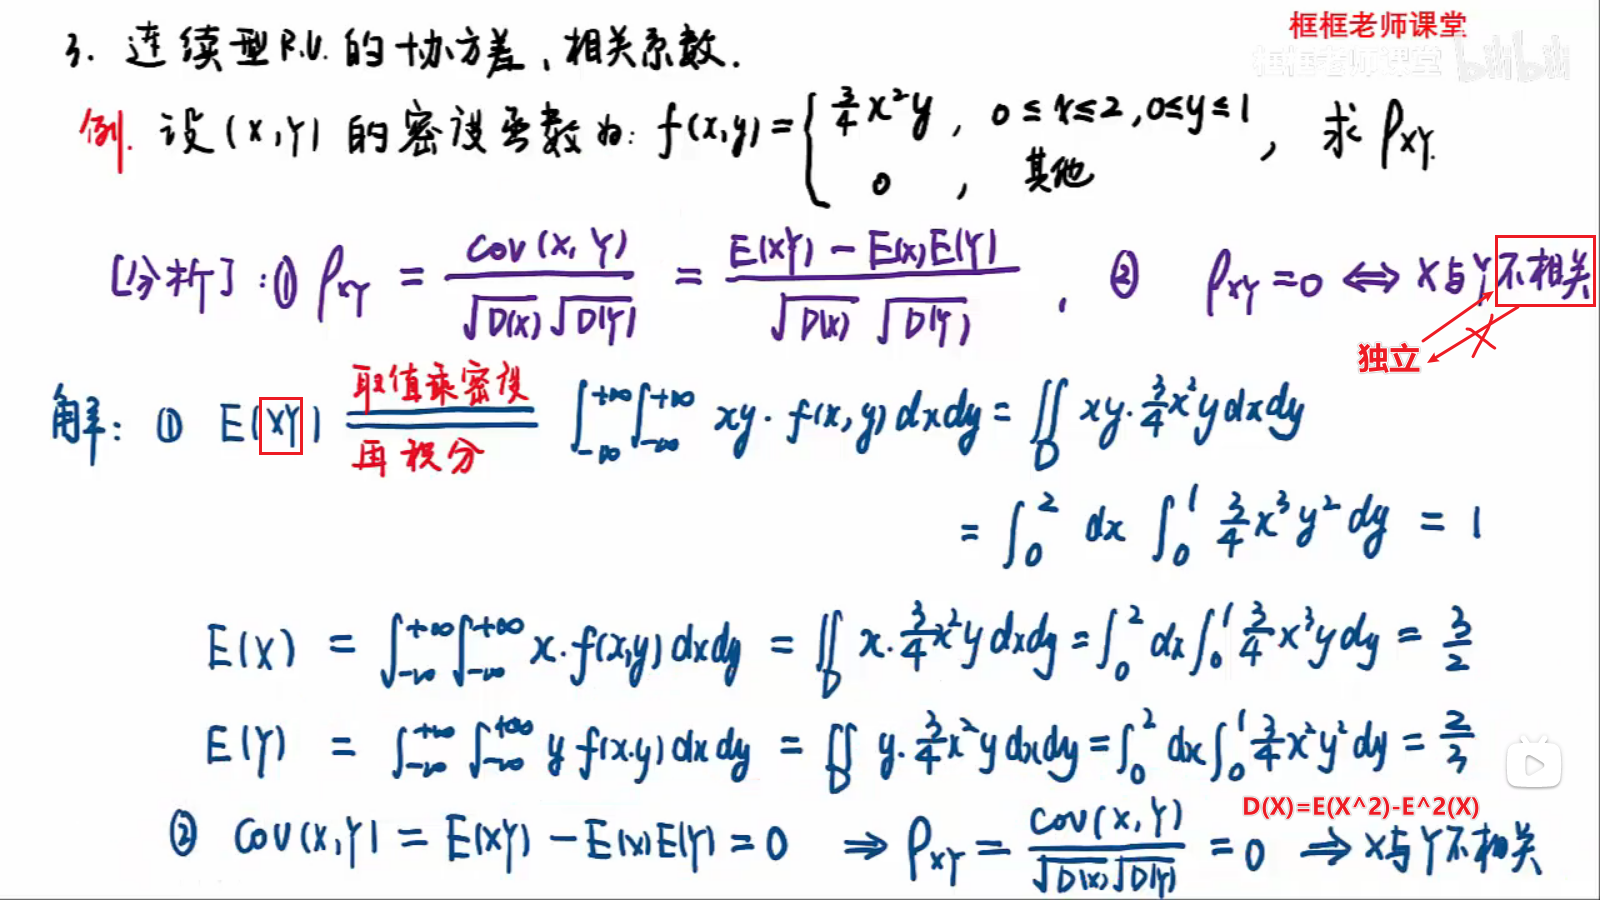 框框老师课堂
框框老师课堂 bilibili
3. 连续型R.V.的协方差、相关系数.
例. 设(X,Y)的密度函数为: f(x,y)={ 3/4 x²y, 0≤x≤2, 0≤y≤1
0, 其他
, 求 ρ_XY.
[分析]: ① ρ_XY = Cov(X,Y)/(√D(X) √D(Y)) = (E(XY)-E(X)E(Y))/(√D(X) √D(Y)). ② ρ_XY=0 ⇔ X与Y不相关
独立
取值乘密度
解: ① E(XY) = ∫_{-∞}^{+∞}∫_{-∞}^{+∞} xy·f(x,y)dxdy = ∬_D xy·3/4 x²y dxdy
再积分
= ∫_0^2 dx ∫_0^1 3/4 x³y² dy = 1
E(X) = ∫_{-∞}^{+∞}∫_{-∞}^{+∞} x·f(x,y)dxdy = ∬_D x·3/4 x²y dxdy = ∫_0^2 dx ∫_0^1 3/4 x³y dy = 3/2
E(Y) = ∫_{-∞}^{+∞}∫_{-∞}^{+∞} y f(x,y)dxdy = ∬_D y·3/4 x²y dxdy = ∫_0^2 dx ∫_0^1 3/4 x²y² dy = 2/3
D(X)=E(X^2)-E^2(X)
② Cov(X,Y) = E(XY)-E(X)E(Y)=0 ⇒ ρ_XY = Cov(X,Y)/(√D(X) √D(Y)) = 0 ⇒ X与Y不相关